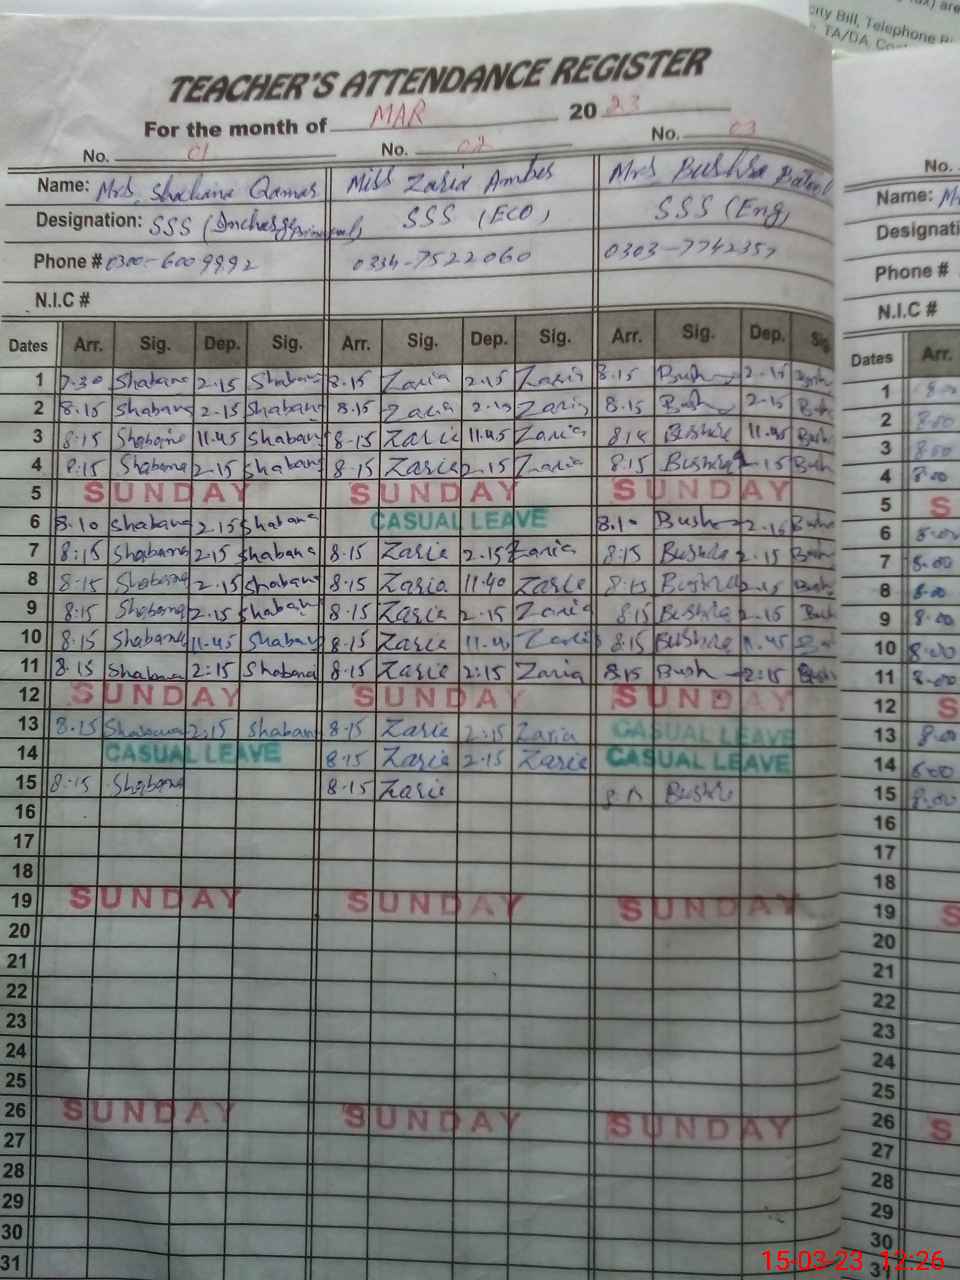 city Bill, Telephone
TA/DA,
TEACHER'S ATTENDANCE REGISTER
For the month of MAR 20 23
No. 01 No. 02 No. 03
Name: Mrs. Shabana Qamar Miss Zaria Amber Mrs. Bushra Batool
Designation: SSS (Incharge Principal) SSS (ECO) SSS (Eng)
Phone # 0300-6009892 0334-7522060 0303-7742357
N.I.C #
Dates Arr. Sig. Dep. Sig. Arr. Sig. Dep. Sig. Arr. Sig. Dep. Sig
1 7.30 Shabana 2.15 Shabana 8.15 Zaria 2.15 Zaria 8.15 Bush 2.15 Bush
2 8.15 Shabana 2.15 Shabana 8.15 Zaria 2.15 Zaria 8.15 Bush 2.15 Bush
3 8:15 Shabana 11.45 Shabana 8-15 Zaria 11.45 Zaria Bushra 11.45 Bush
4 8:15 Shabana 2-15 Shabana 8-15 Zaria 2.15 Zaria 8.15 Bushra 2.15 Bush
5 SUNDAY SUNDAY SUNDAY
6 8.10 Shabana 2.15 Shabana CASUAL LEAVE 8.10 Bush Bush
7 8:15 Shabana 2.15 Shabana 8.15 Zaria 2.15 Zaria 8:15 Bushra 2.15 Bush
8 8.15 Shabana 2.15 Shabana 8.15 Zaria 11.40 Zaria 8.15 Bushra 2.15 Bush
9 8.15 Shabana 2.15 Shabana 8.15 Zaria 2.15 Zaria 8.15 Bushra 2.15 Bush
10 8.15 Shabana 11.45 Shabana 8.15 Zaria Zaria 8.15 Bushra 11.45
11 8.15 Shabana 2:15 Shabana 8.15 Zaria 2:15 Zaria 8.15 Bush 2:15 Bush
12 SUNDAY SUNDAY SUNDAY
13 8.15 Shabana 2.15 Shabana 8.15 Zaria 2:15 Zaria CASUAL LEAVE
14 CASUAL LEAVE 8.15 Zaria 2.15 Zaria CASUAL LEAVE
15 8.15 Shabana 8.15 Zaria Bushra
16
17
18
19 SUNDAY SUNDAY SUNDAY
20
21
22
23
24
25
26 SUNDAY SUNDAY SUNDAY
27
28
29
30
31
No.
Name:
Designati
Phone #
N.I.C #
Dates Arr.
1 8.00
2 8.00
3 8.00
4 8.00
5 S
6 8.00
7 8.00
8 8.00
9 8.00
10 8.00
11 8.00
12 S
13 8.00
14 8.00
15 8.00
16
17
18
19 S
20
21
22
23
24
25
26 S
27
28
29
30
31
15-03-23 12:26